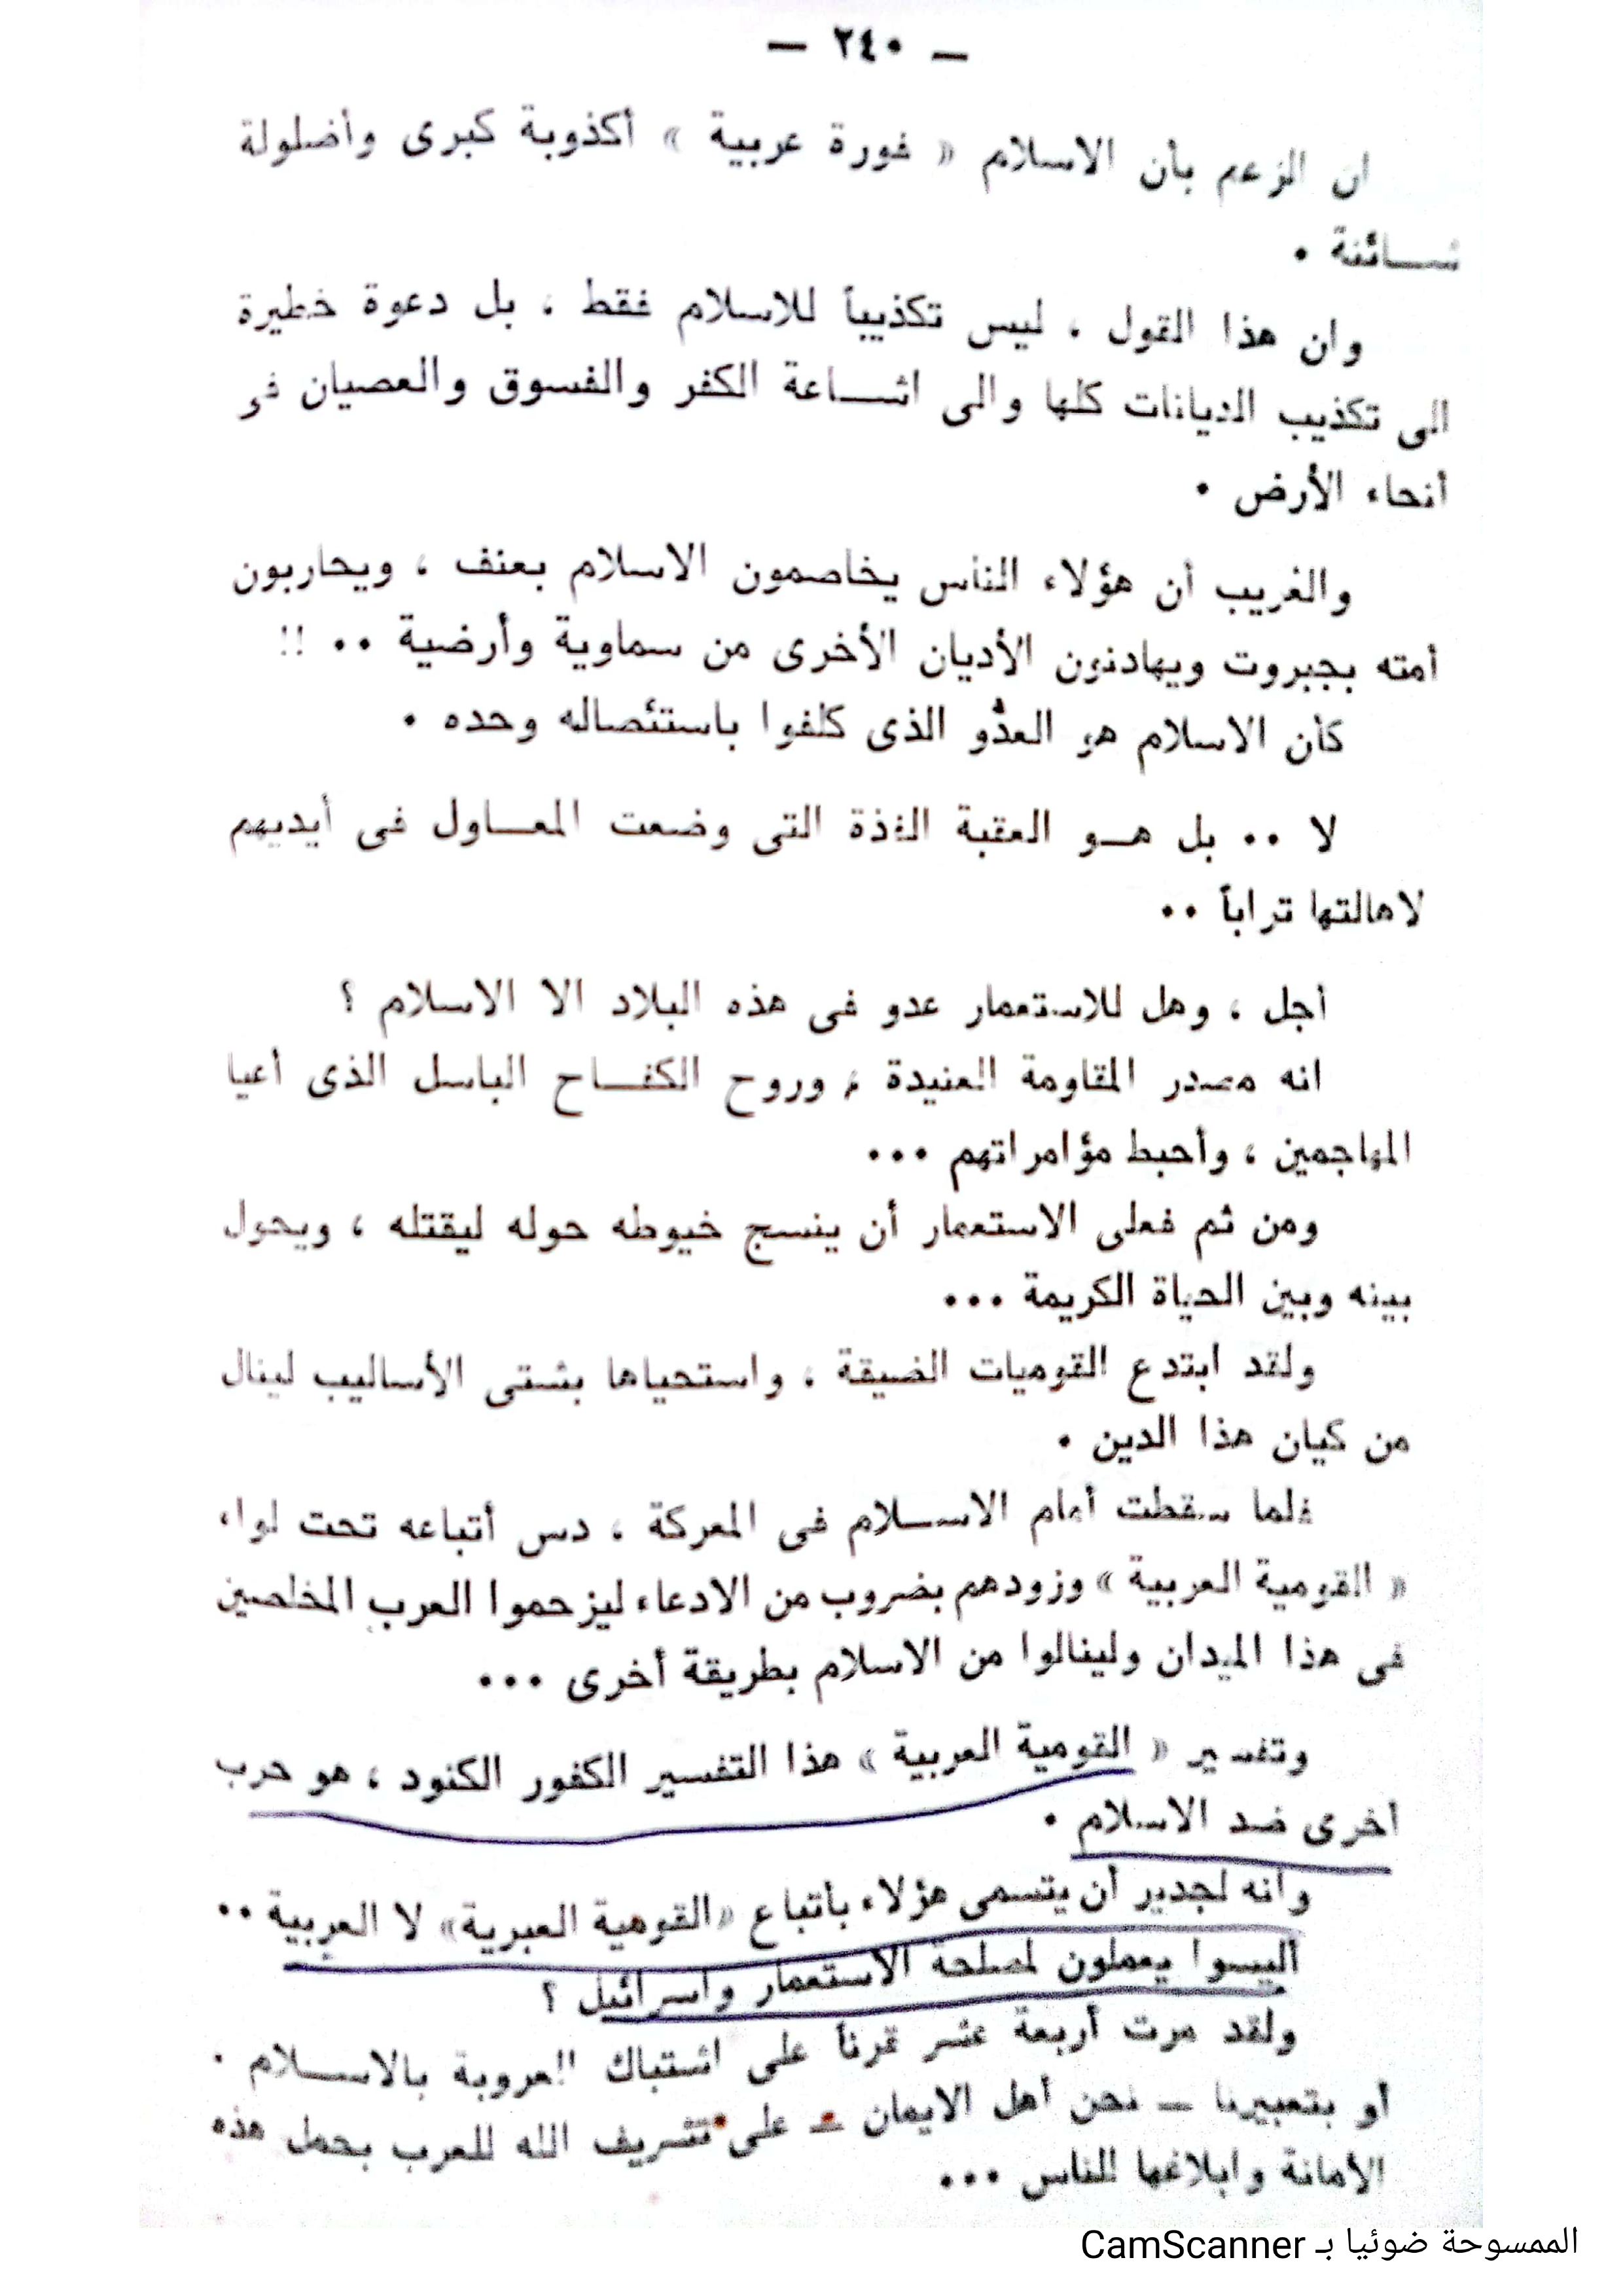 — ٢٤٠ —
ان الزعم بأن الاسلام « فورة عربية » أكذوبة كبرى وأضلولة
شــائنة •
وان هذا القول ، ليس تكذيباً للاسلام فقط ، بل دعوة خطيرة
الى تكذيب الديانات كلها والى اشــاعة الكفر والفسوق والعصيان فى
أنحاء الأرض •
والغريب أن هؤلاء الناس يخاصمون الاسلام بعنف ، ويحاربون
أمته بجبروت ويهادنون الأديان الأخرى من سماوية وأرضية •• !!
كأن الاسلام هو العدو الذى كلفوا باستئصاله وحده •
لا •• بل هــو العقبة الفذة التى وضعت المعــاول فى أيديهم
لاهالتها تراباً ••
أجل ، وهل للاستعمار عدو فى هذه البلاد الا الاسلام ؟
انه مصدر المقاومة العنيدة ، وروح الكفــاح الباسل الذى أعيا
المهاجمين ، وأحبط مؤامراتهم •••
ومن ثم فعلى الاستعمار أن ينسج خيوطه حوله ليقتله ، ويحول
بينه وبين الحياة الكريمة •••
ولقد ابتدع القوميات الضيقة ، واستحياها بشتى الأساليب لينال
من كيان هذا الدين •
فلما سقطت أمام الاســلام فى المعركة ، دس أتباعه تحت لواء
« القومية العربية » وزودهم بضروب من الادعاء ليزحموا العرب المخلصين
فى هذا الميدان ولينالوا من الاسلام بطريقة أخرى •••
وتفسير « القومية العربية » هذا التفسير الكفور الكنود ، هو حرب
أخرى ضد الاسلام •
وانه لجدير أن يتسمى هؤلاء بأتباع «القومية العبرية» لا العربية ••
أليسوا يعملون لمصلحة الاستعمار واسرائيل ؟
ولقد مرت أربعة عشر قرناً على اشتباك العروبة بالاســلام •
أو بتعبيرنا — نحن أهل الايمان — على تشريف الله للعرب بحمل هذه
الأمانة وابلاغها للناس •••
الممسوحة ضوئيا بـ CamScanner